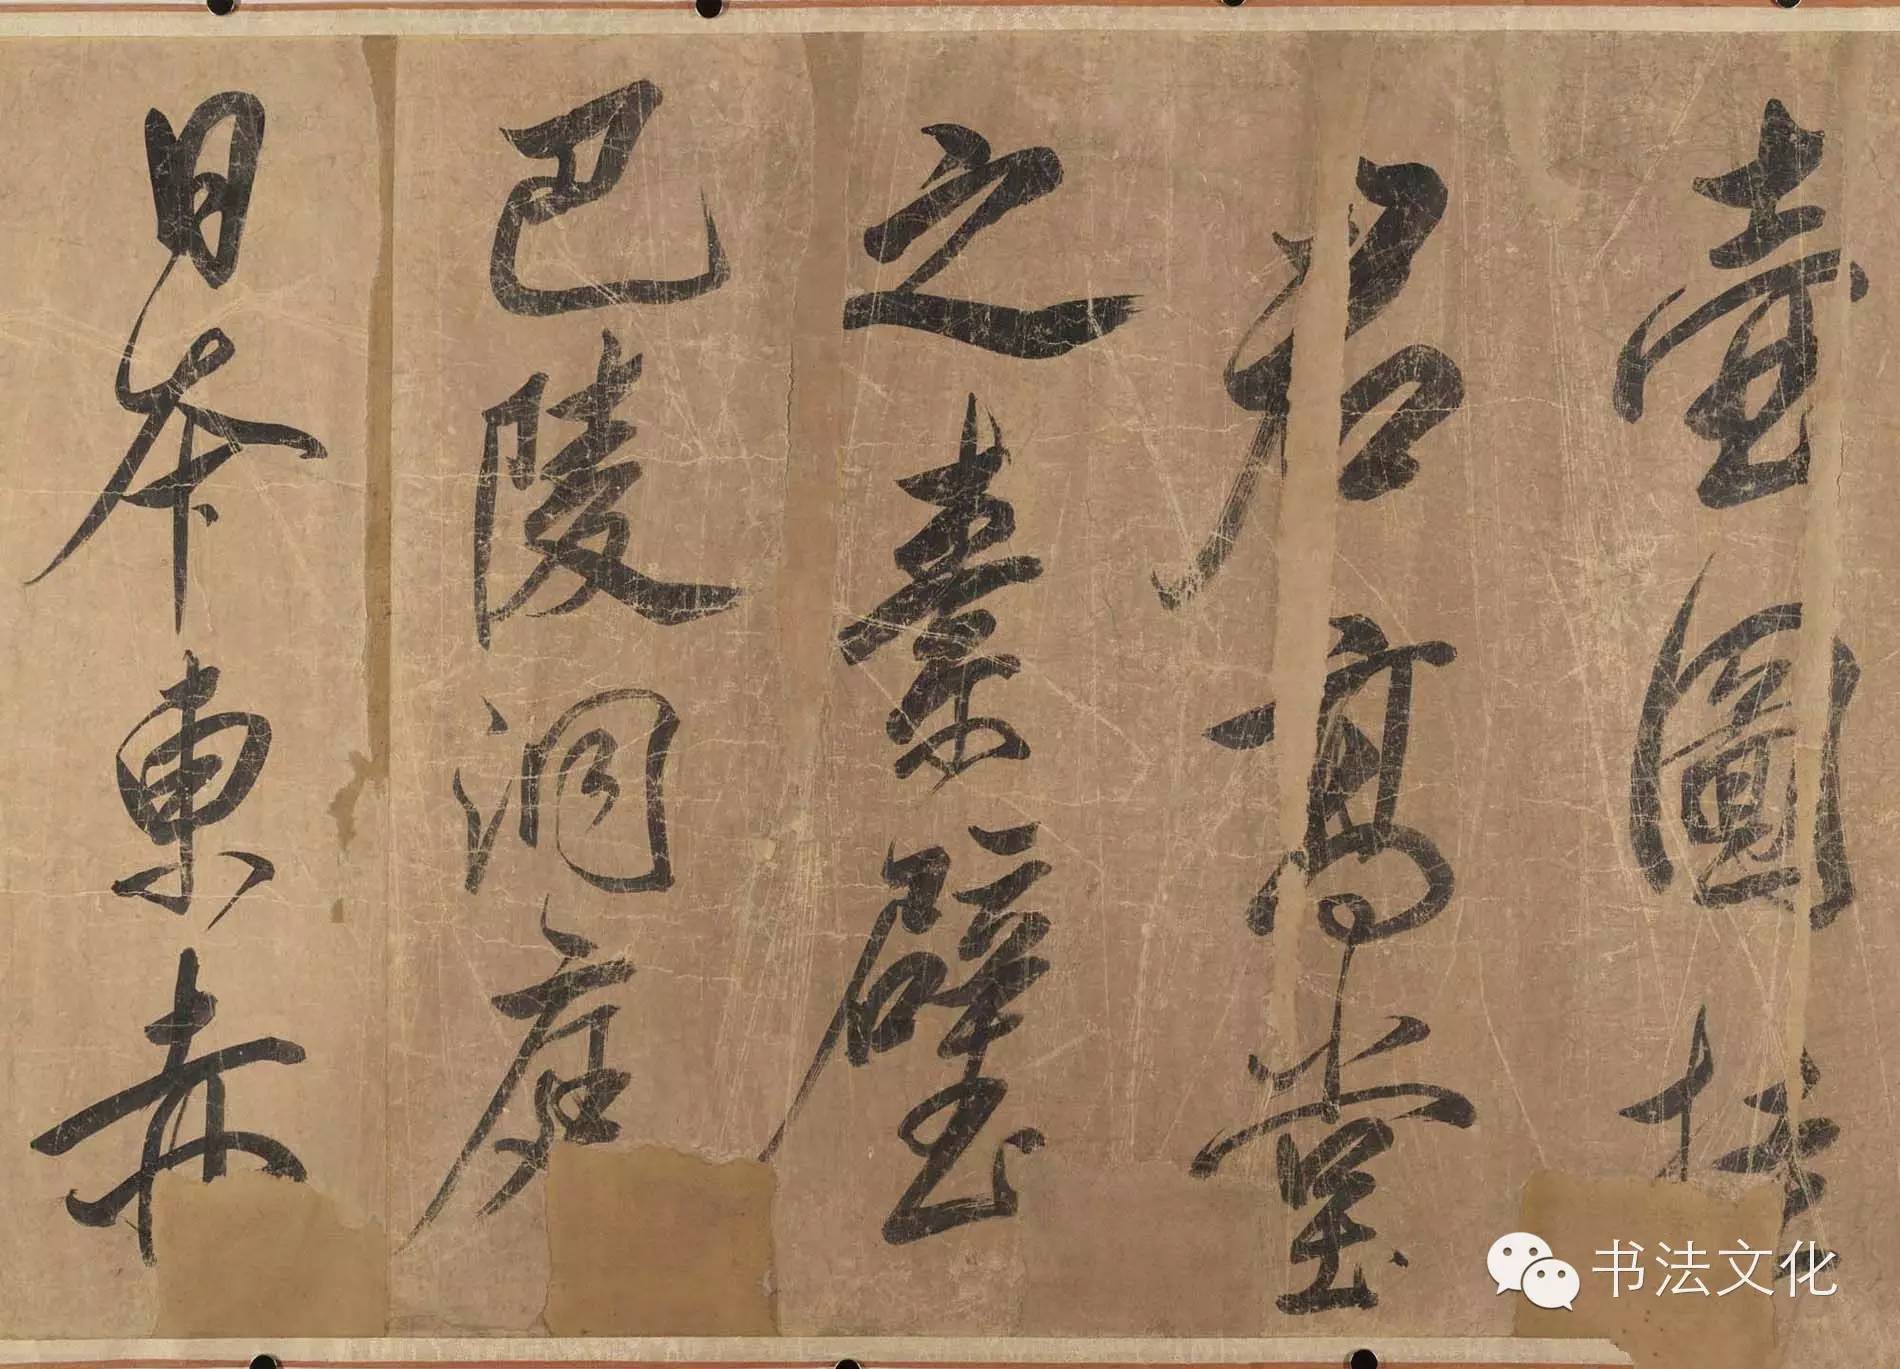 壺圖掛
君高堂
之素壁
巴陵洞庭
日本東赤
书法文化